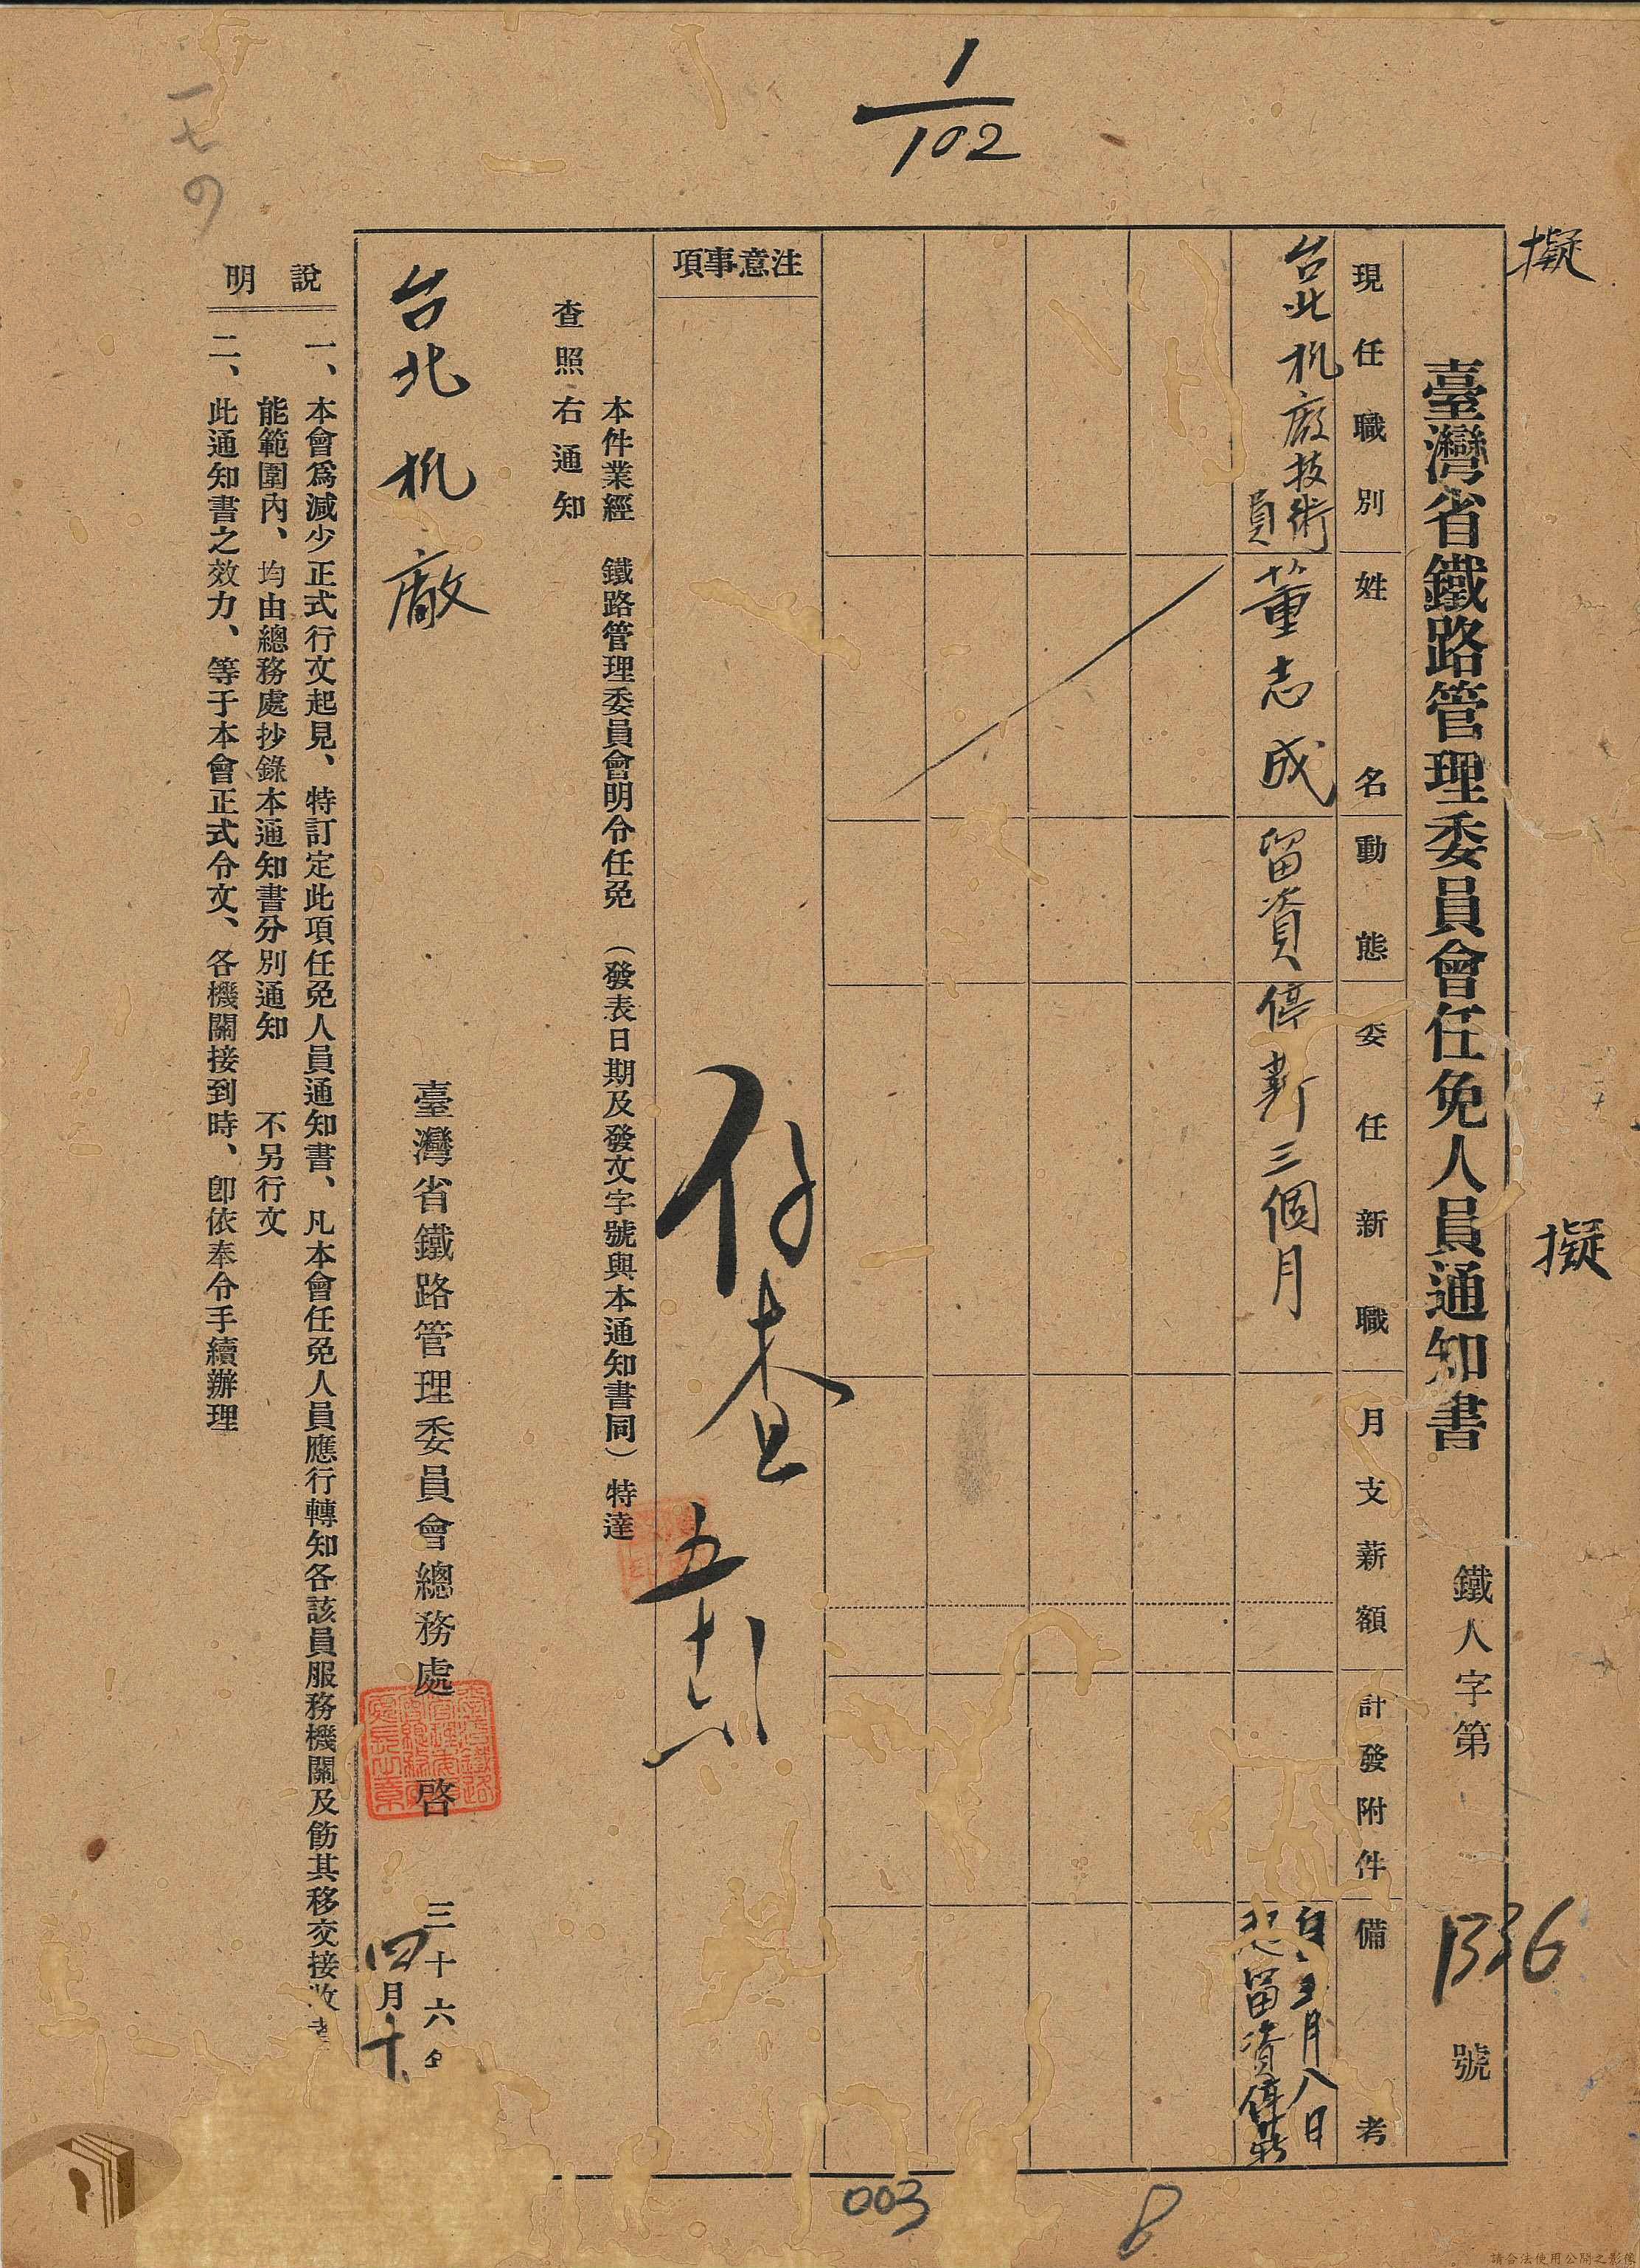 1/102
一七の
擬
擬
臺灣省鐵路管理委員會任免人員通知書　鐵人字第 1336 號
現任職別　姓名　動態　委任新職　月支薪額　計發附件　備考
台北机廠技術員　董志成　留資停薪三個月　自五月八日起留資停薪
注意事項
仔查
本件業經　鐵路管理委員會明令任免　（發表日期及發文字號與本通知書同）特達
查照右通知
台北机廠
臺灣省鐵路管理委員會總務處　啓　三十六
四月十
說明
一、本會爲減少正式行文起見、特訂定此項任免人員通知書、凡本會任免人員應行轉知各該員服務機關及飭其移交接收
能範圍內、均由總務處抄錄本通知書分別通知　不另行文
二、此通知書之效力、等于本會正式令文、各機關接到時、卽依奉令手續辦理
003
8
請合法使用公開之影像